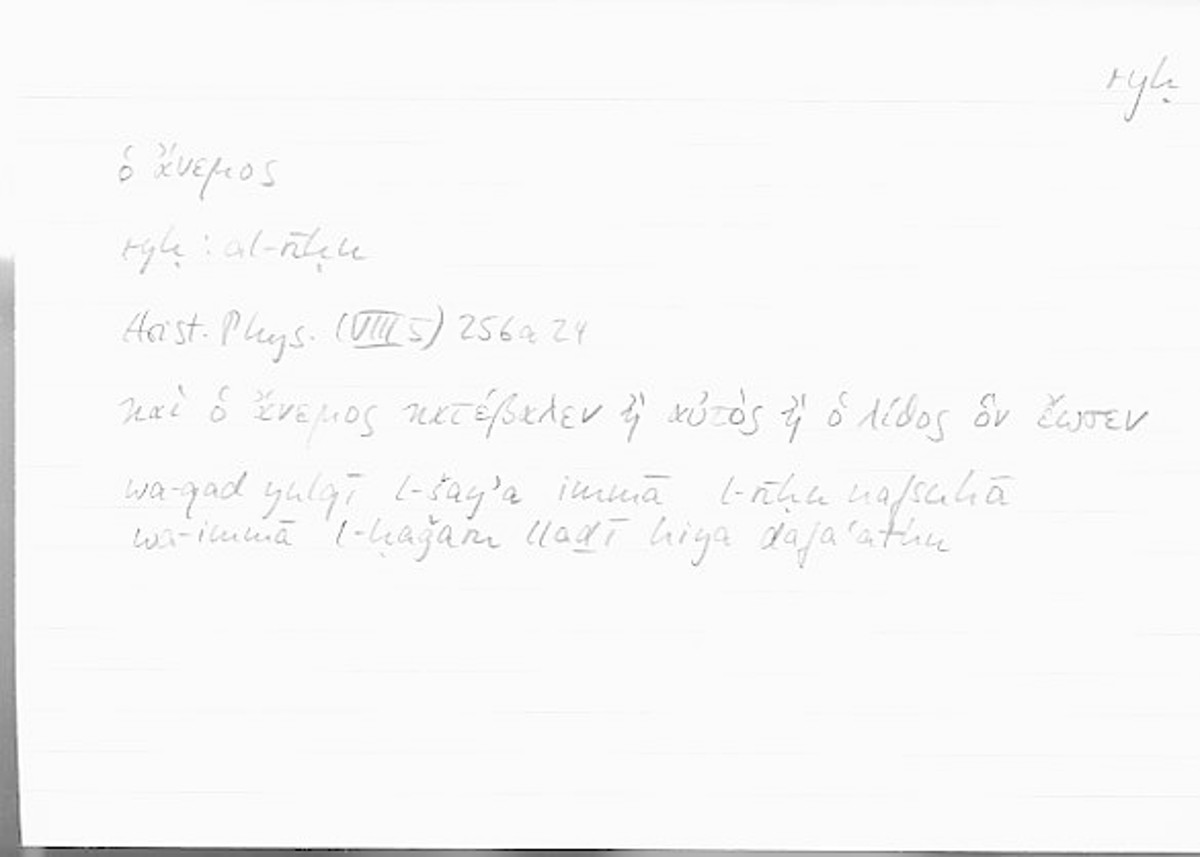 ryḥ
ὁ ἄνεμος
ryḥ : al-rīḥu
Arist. Phys. (VIII 5) 256a 24
καὶ ὁ ἄνεμος κατέβαλεν ἢ αὐτὸς ἢ ὁ λίθος ὃν ἔωσεν
wa-qad yulqī l-šayʾa immā l-rīḥu nafsuhā
wa-immā l-ḥaǧaru lladī hiya dafaʿathu